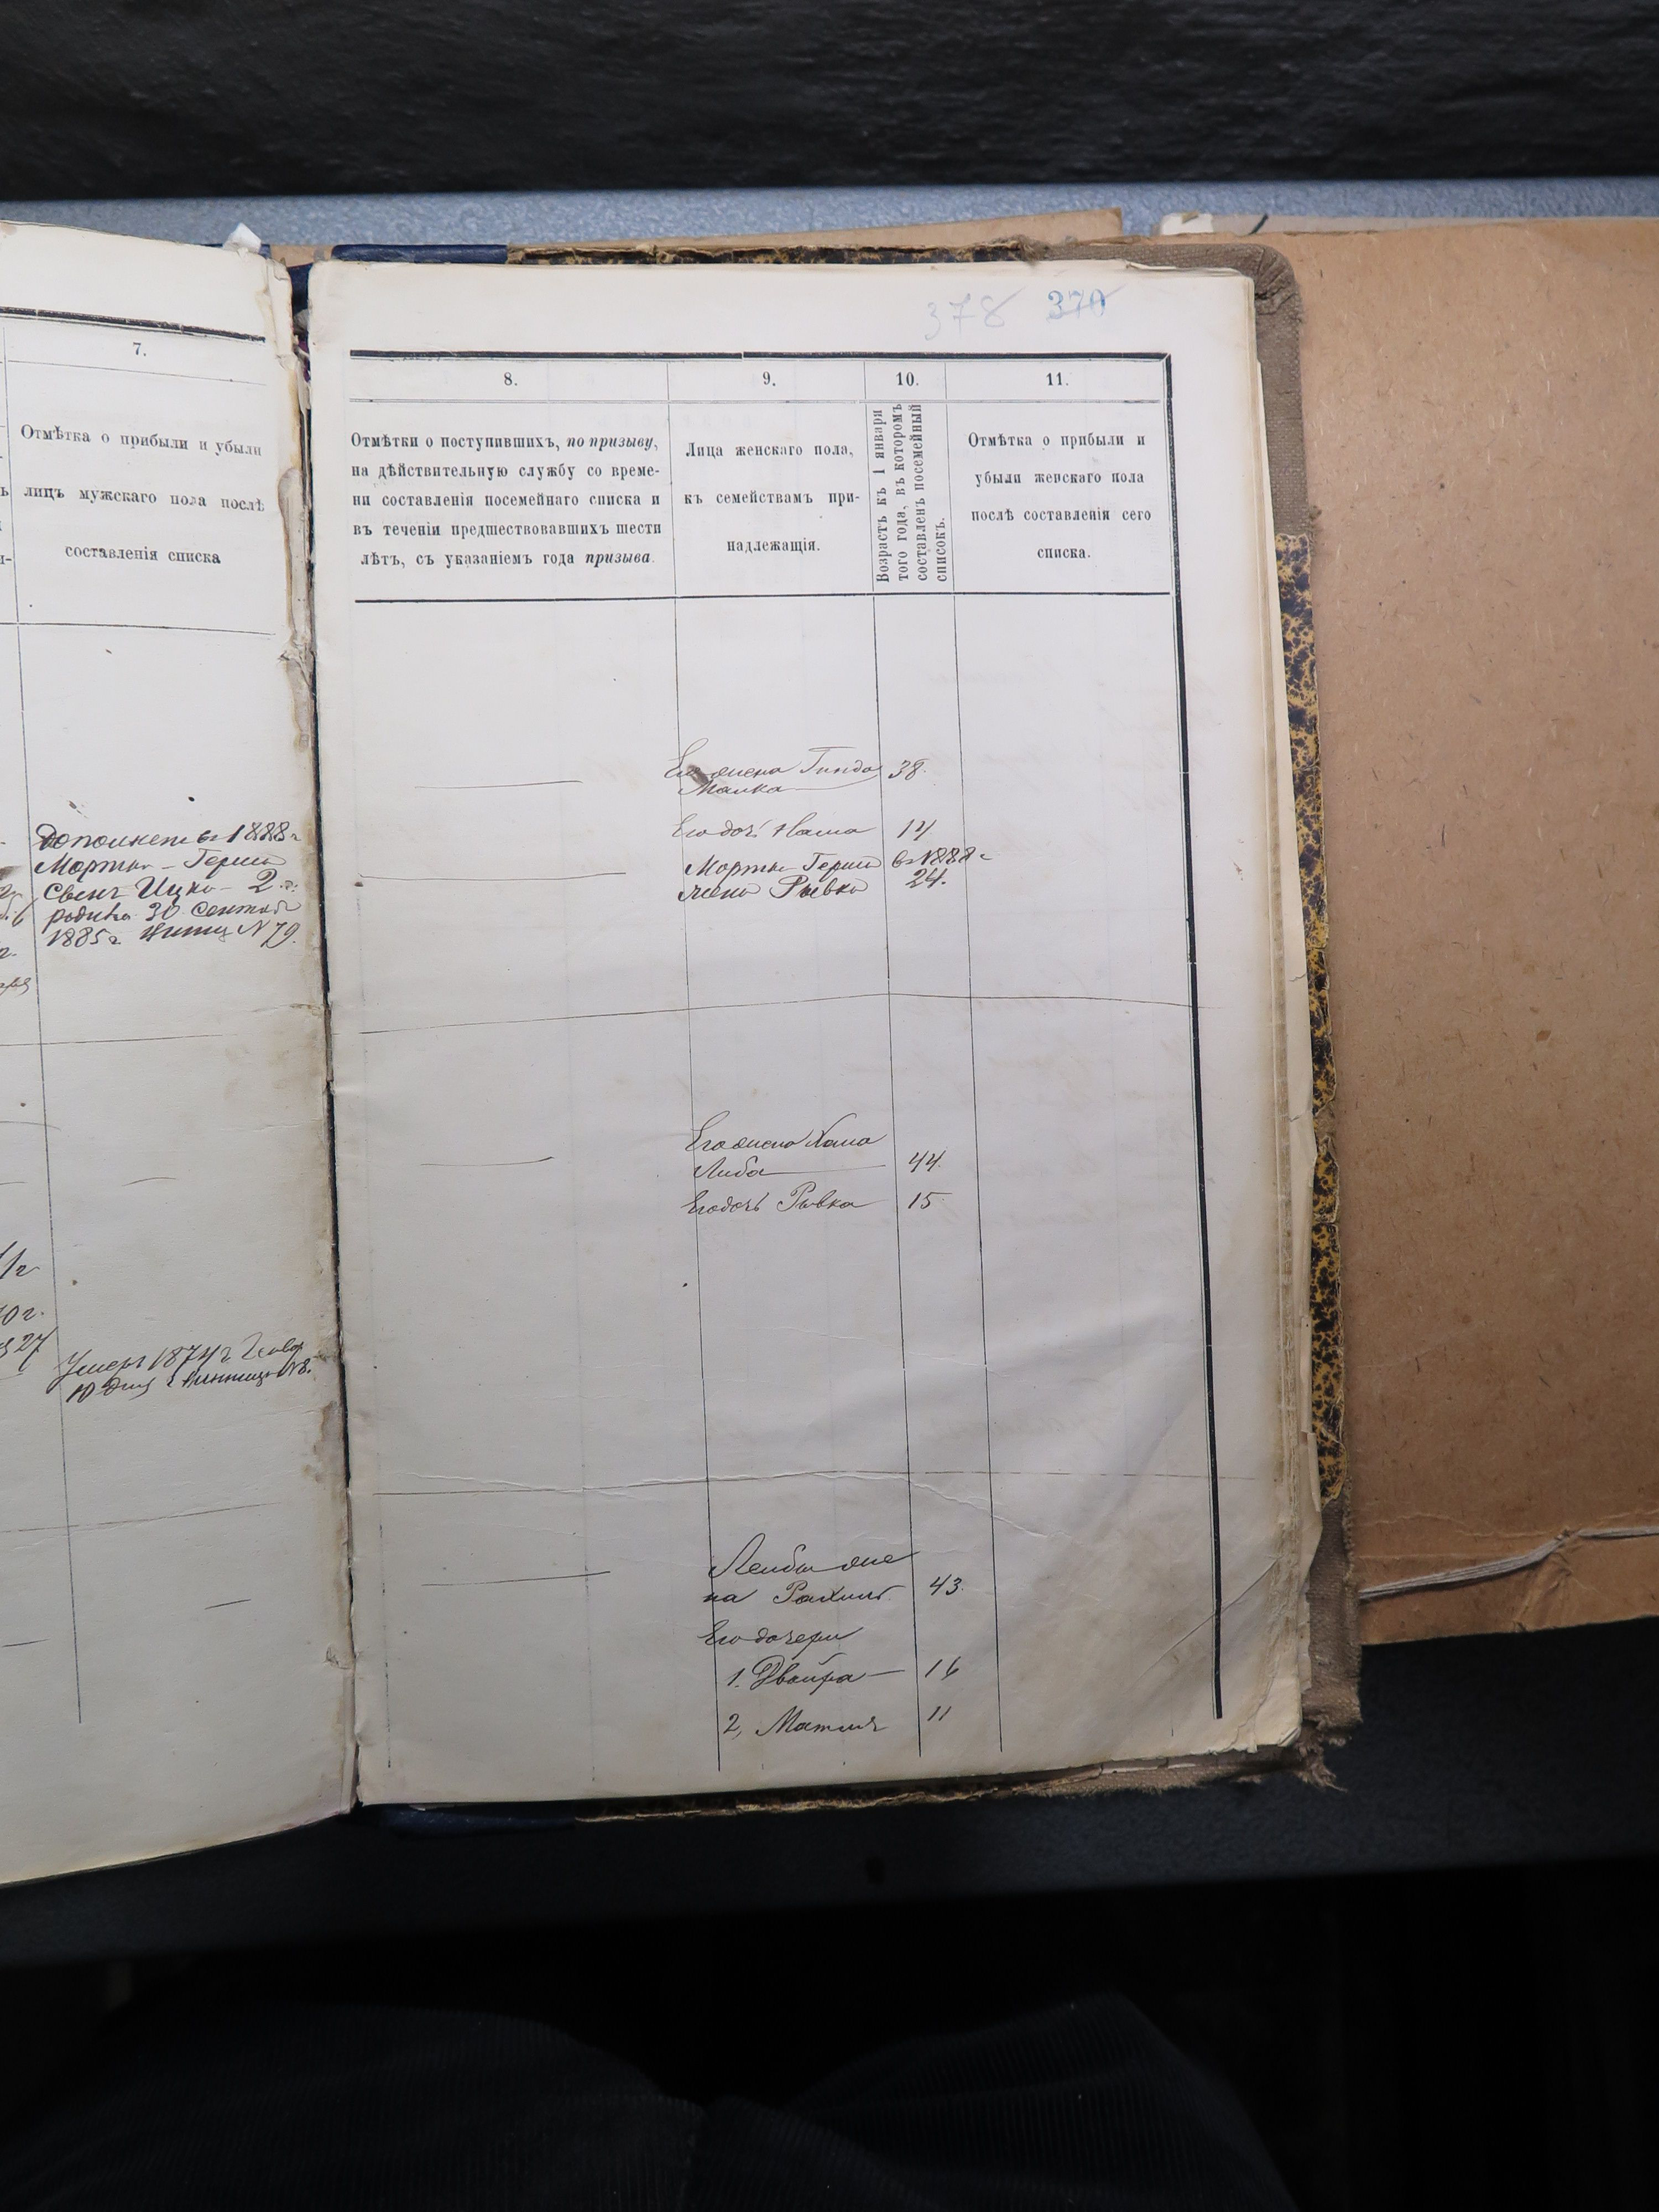 7.
Отмѣтка о прибыли и убыли
лицъ мужскаго пола послѣ
составленія списка
Дополненъ въ 1888 г
Мортко-Герша
сынъ Ицко - 2
родився 30 Сентяб
1885 г. Винниц № 79.
Умеръ 1874 г Генвар
10 дня г Винница № 8.
378 370
8.
9.
10.
11.
Отмѣтки о поступившихъ, по призыву,
на дѣйствительную службу со време-
ни составленія посемейнаго списка и
въ теченіи предшествовавшихъ шести
лѣтъ, съ указаніемъ года призыва.
Лица женскаго пола,
къ семействамъ при-
надлежащія.
Возрастъ къ 1 января
того года, въ которомъ
составленъ посемейный
списокъ.
Отмѣтка о прибыли и
убыли женскаго пола
послѣ составленія сего
списка.
Его жена Гинда 38.
Малка
Его дочь Хаша 14
Мортко Герша въ 1888 г
жена Рывка 24.
Его жена Хана
Либа 44.
Его дочь Рывка 15.
Лейбы же
на Рахиль 43.
Его дочери
1. Двойра 16
2, Матля 11